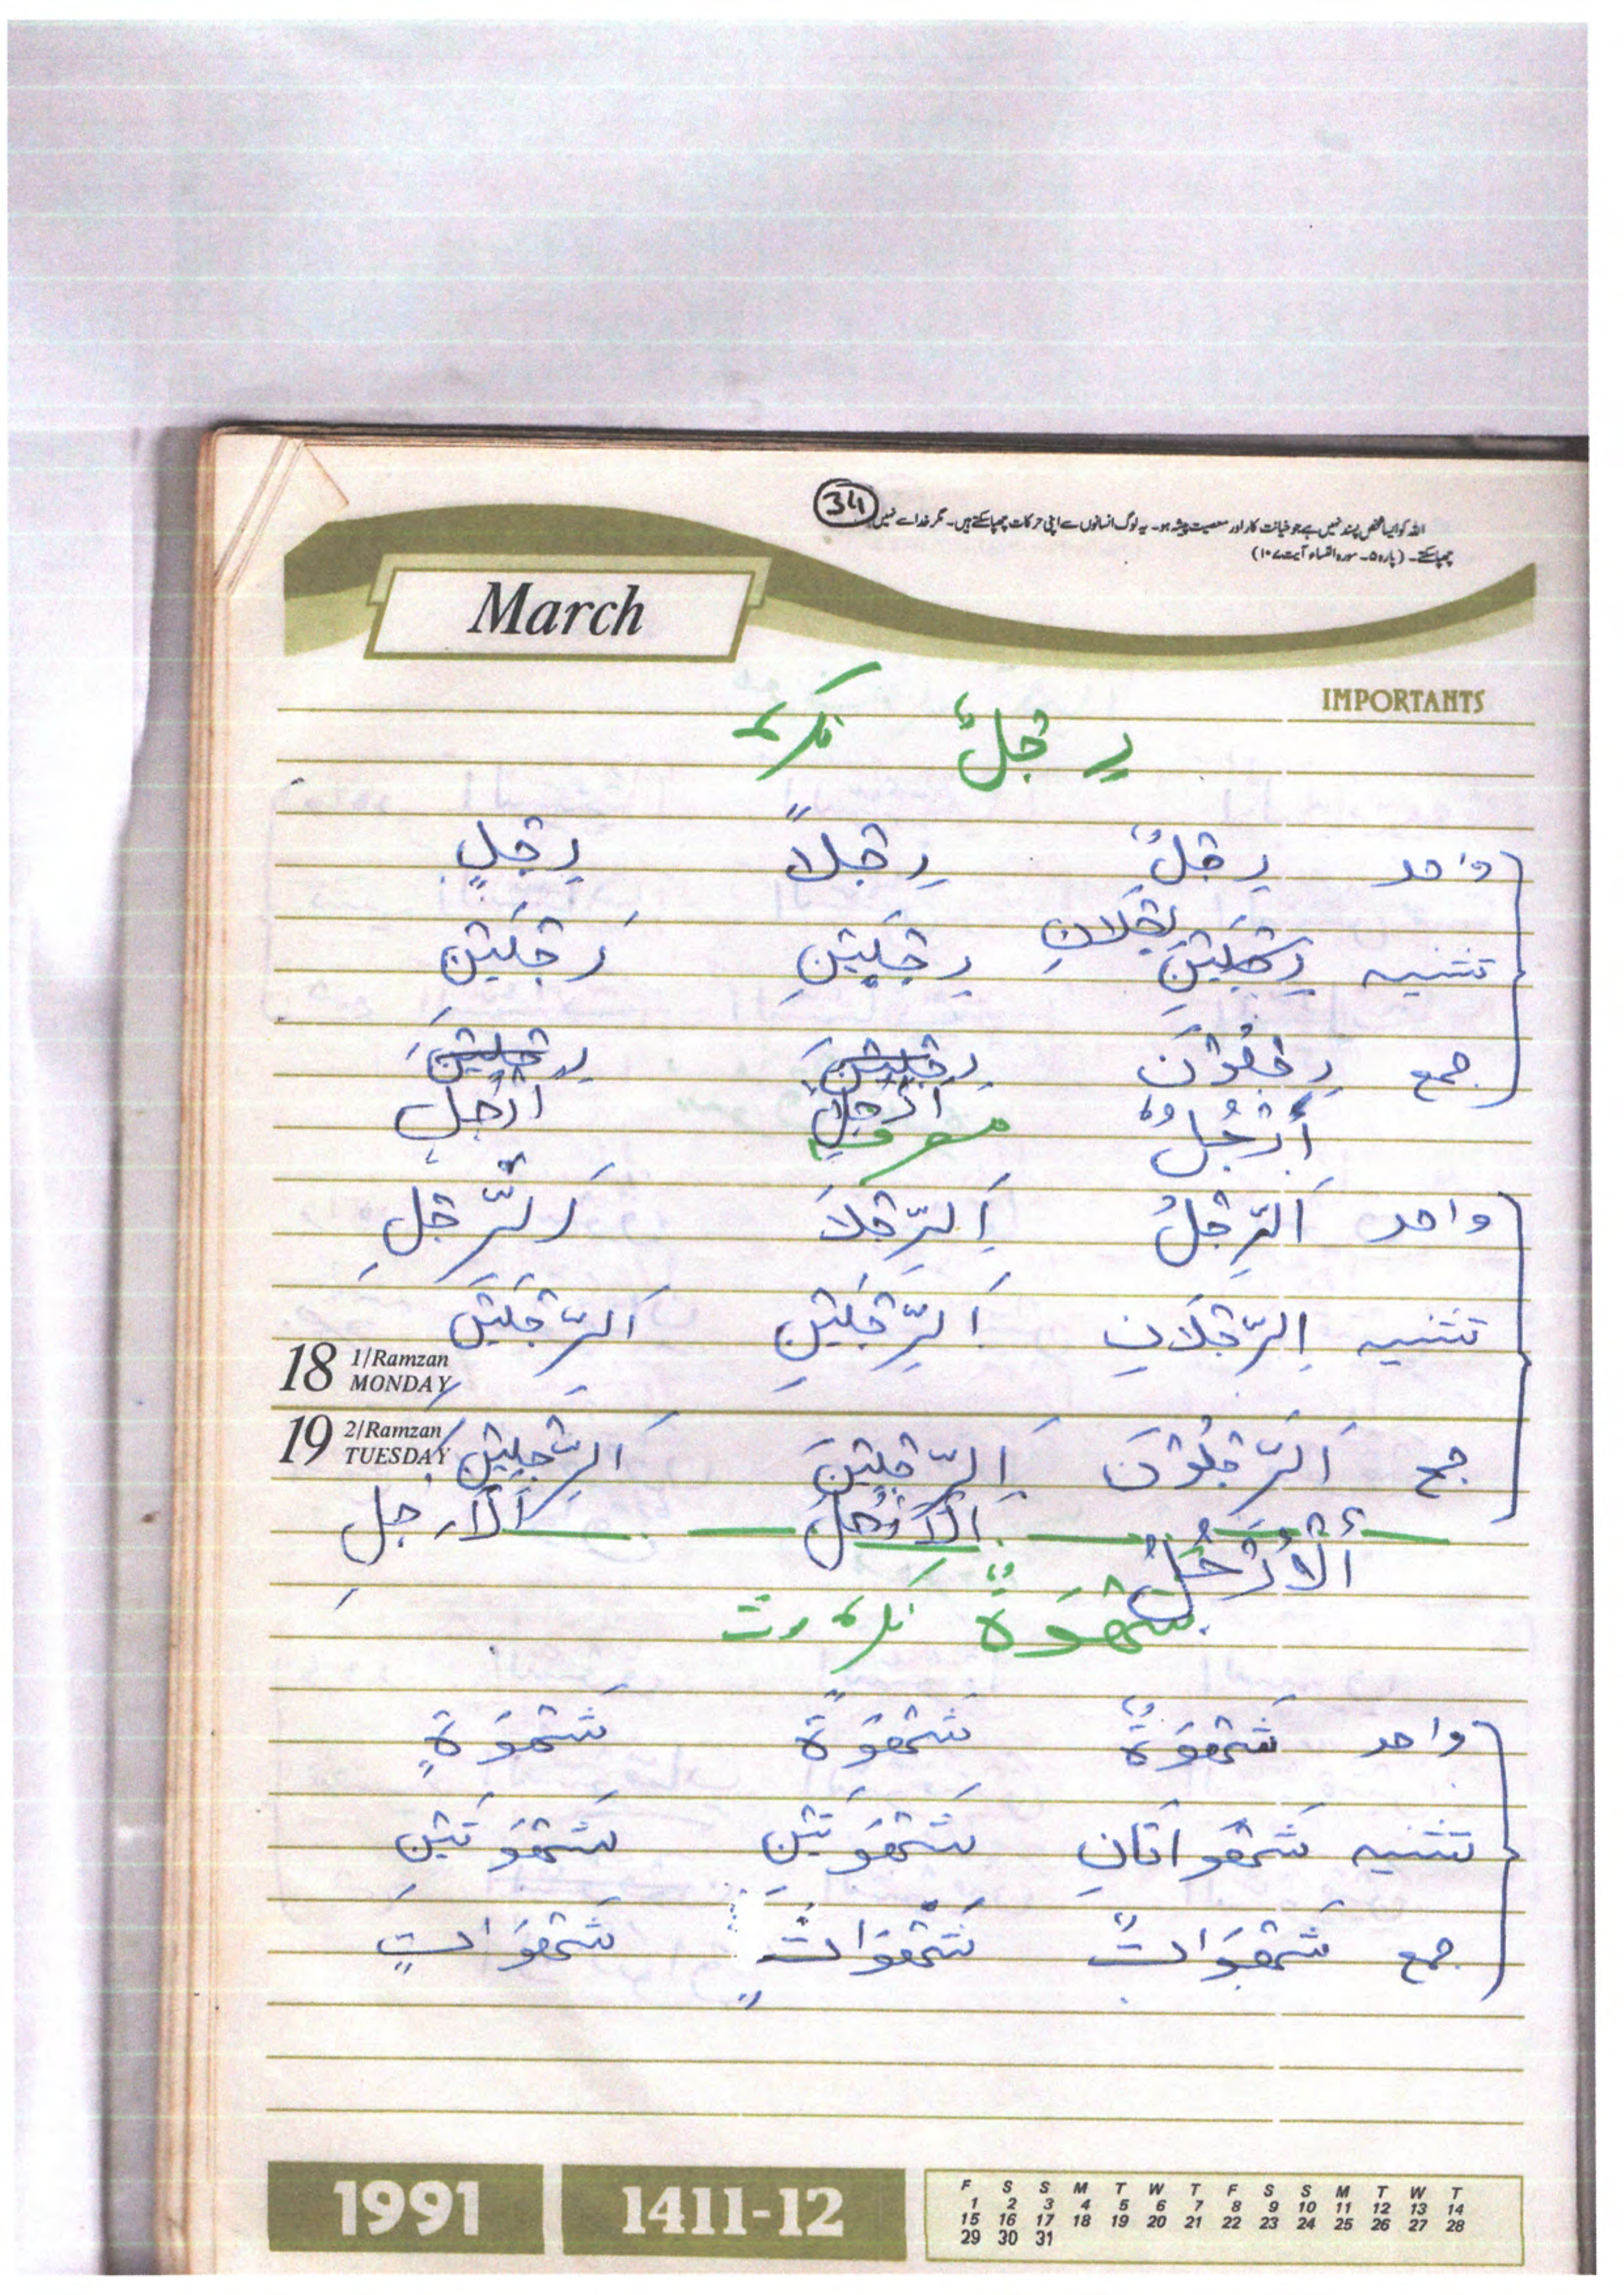 34
اللہ کو ایسا شخص پسند نہیں ہے جو خیانت کار اور معصیت پیشہ ہو۔ یہ لوگ انسانوں سے اپنی حرکات چھپا سکتے ہیں۔ مگر خدا سے نہیں
چھپا سکتے۔ (پارہ ۵۔ سورہ النساء آیت ۱۰۷)
March
IMPORTANTS
رِجْلٌ نکرہ
واحد رِجْلٌ رِجْلاً رِجْلٍ
رِجْلَانِ
تثنیہ رِجْلَیْنِ رِجْلَیْنِ رِجْلَیْنِ
جمع رِجْلُوْنَ رِجْلِیْنَ رِجْلِیْنَ
أَرْجُلٌ اَرْجُلً اَرْجُلٍ
معرفہ
واحد اَلرِّجْلُ اَلرِّجْلَا اَلرِّجْلِ
تثنیہ اَلرِّجْلَانِ اَلرِّجْلَیْنِ اَلرِّجْلَیْنِ
18 1/Ramzan MONDAY
19 2/Ramzan TUESDAY
جمع اَلرِّجْلُوْنَ اَلرِّجْلِیْنَ اَلرِّجْلِیْنَ
أَلْأَرْجُلُ اَلْاَرْجُلَ اَلْاَرْجُلِ
شَهْوَةٌ نکرہ مونث
واحد شَهْوَةٌ شَهْوَةً شَهْوَةٍ
تثنیہ شَهْوَاتَانِ شَهْوَتَیْنِ شَهْوَتَیْنِ
جمع شَهْوَاتٌ شَهْوَاتٍ شَهْوَاتٍ
1991 1411-12
F S S M T W T F S S M T W T
1 2 3 4 5 6 7 8 9 10 11 12 13 14
15 16 17 18 19 20 21 22 23 24 25 26 27 28
29 30 31